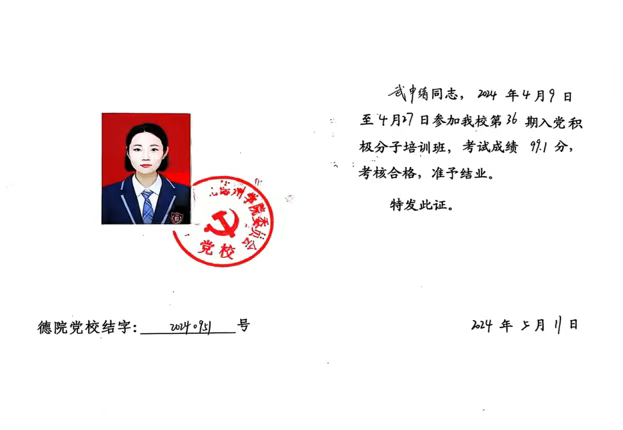 武申绢同志，2024 年 4 月 9 日
至 4 月 27 日参加我校第 36 期入党积
极分子培训班，考试成绩 99.1 分，
考核合格，准予结业。
特发此证。
州学院委员会
党校
德院党校结字：20240951 号
2024 年 5 月 11 日